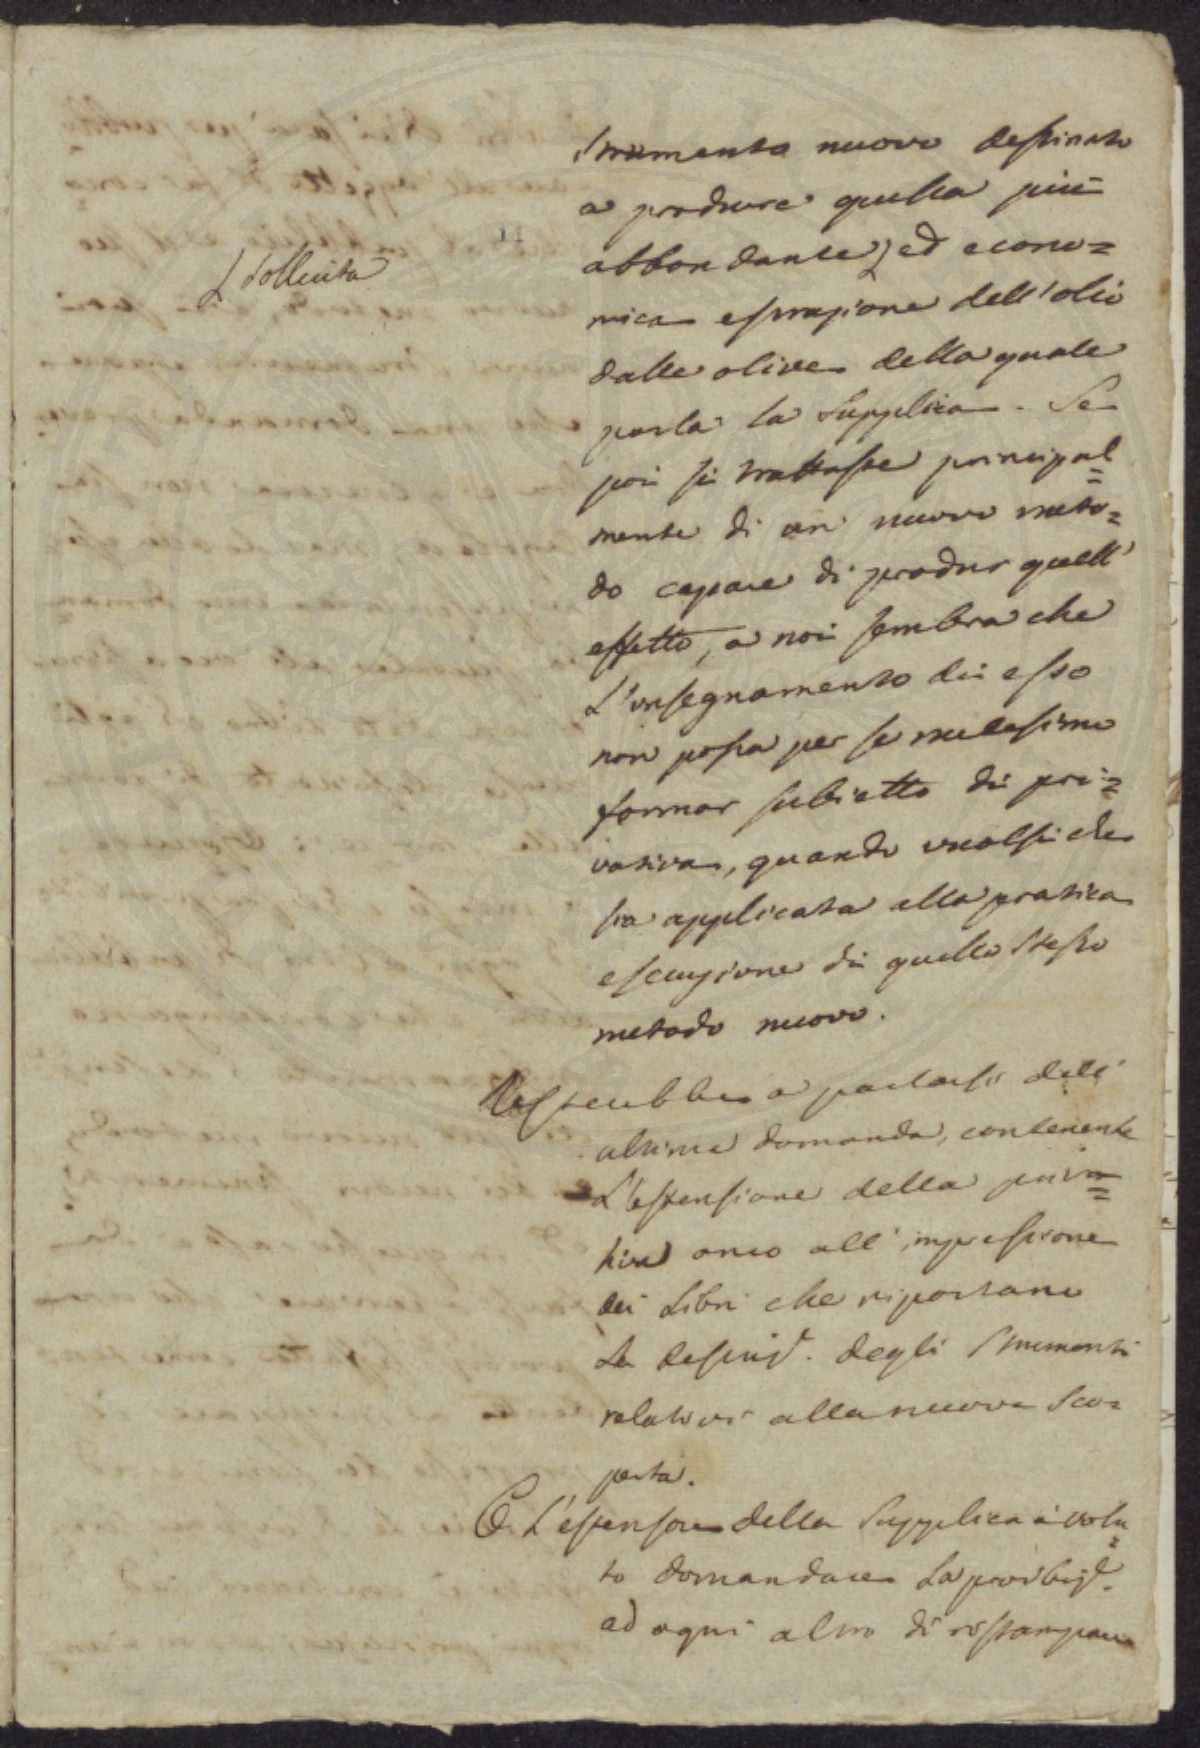 strumento nuovo destinato
a produrre questa più
abbondante, ed econo=
sollecita
mica estrazione dell'olio
dalle olive della quale
parla la Supplica. Se
poi si trattasse principal=
mente di un nuovo meto=
do capace di produr quell'
effetto, a noi sembra che
L'insegnamento di esso
non possa per se medesimo
formar subietto di pri=
vativa, quando vuolsi che
sia applicata alla pratica
esecuzione di quello stesso
metodo nuovo.
Resterebbe a parlarsi dell'
ultima domanda, contenente
L'estensione della priva=
tiva anco all'impressione
dei Libri che riportano
La descriz.e degli strumenti
relativi alla nuova sco=
perta.
E L'estensore della Supplica à volu=
to domandare La proibiz.e
ad ogni altro di ristampare